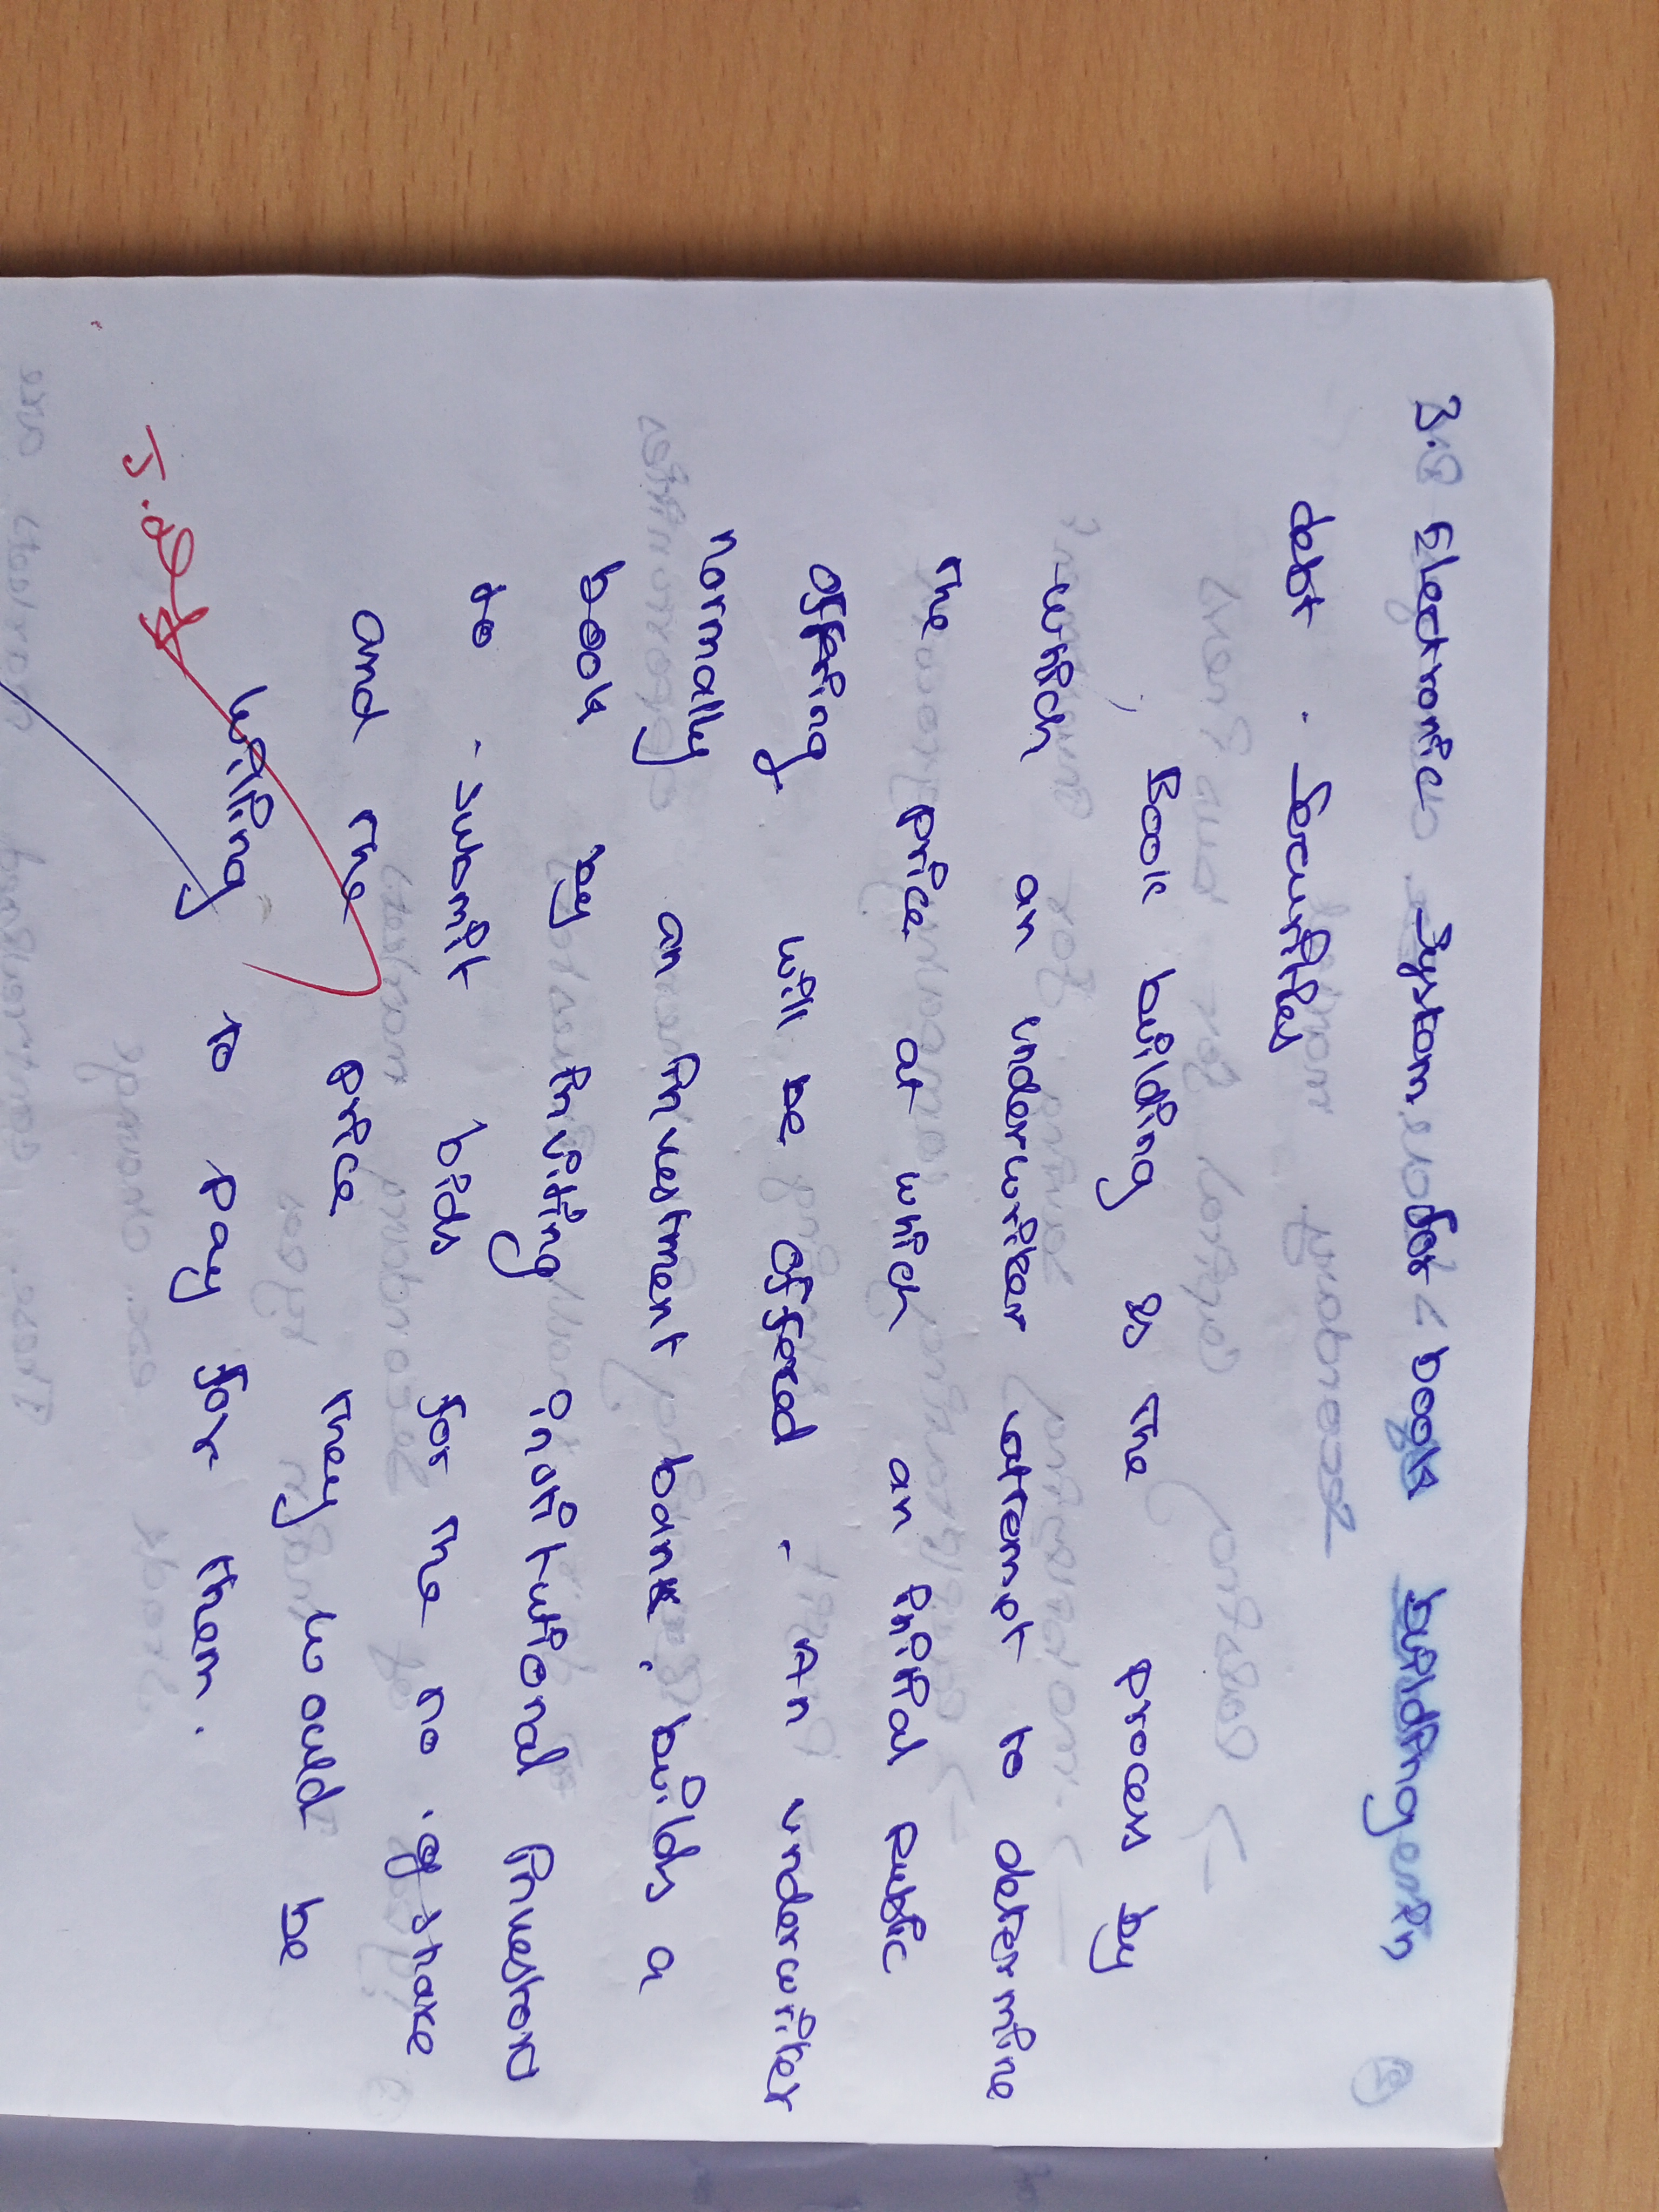 3. Electronic System for book building in
debt securities
Book building is the process by
which an underwriter attempt to determine
The price at which an initial public
offering will be offered. An underwriter
normally an investment bank, builds a
book by inviting institutional investors
to submit bids for the no. of share
and the price they would be
willing to pay for them.